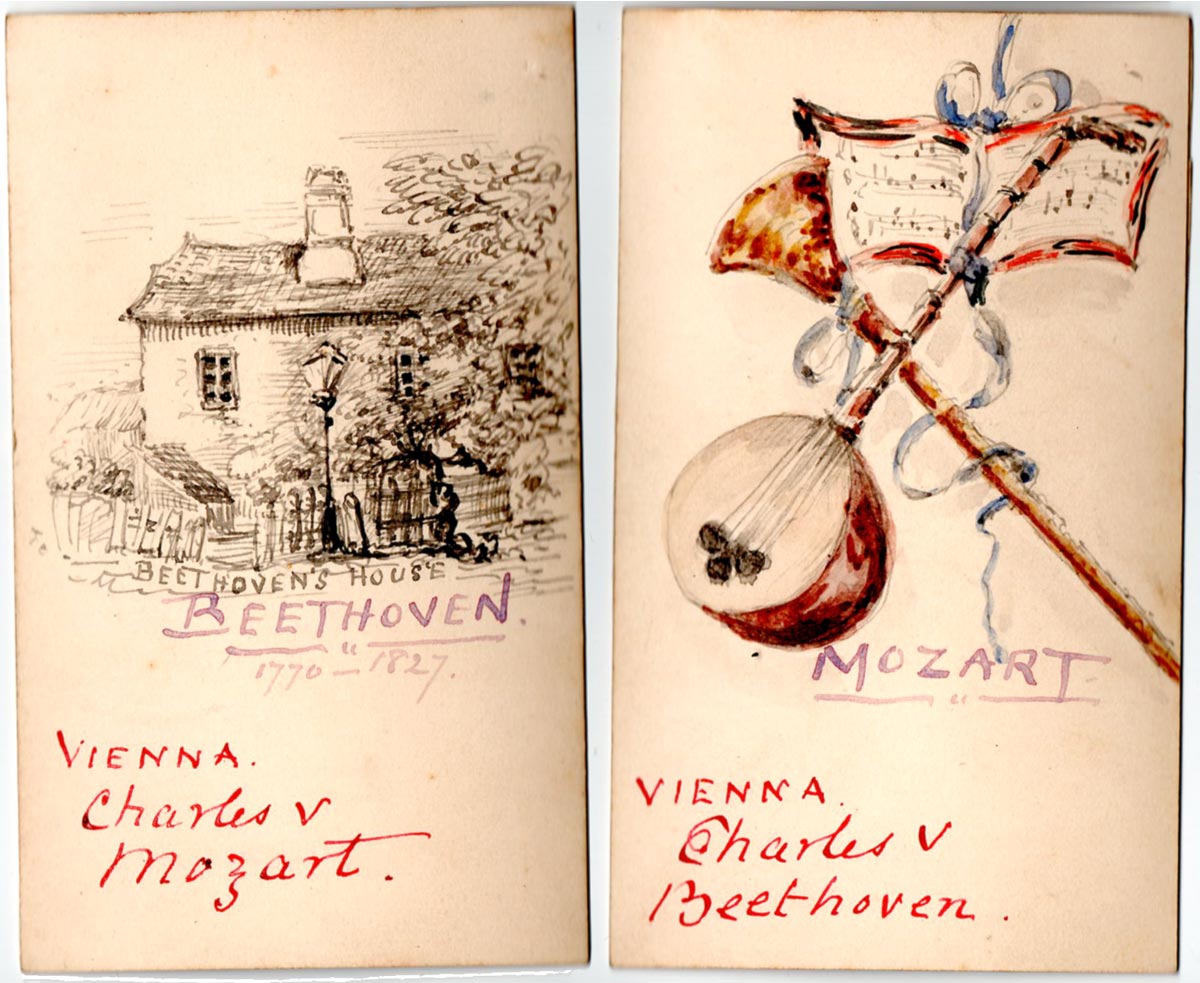 BEETHOVEN'S HOUSE
BEETHOVEN.
1770 – 1827.
VIENNA.
Charles V
Mozart.
MOZART
VIENNA.
Charles V
Beethoven.